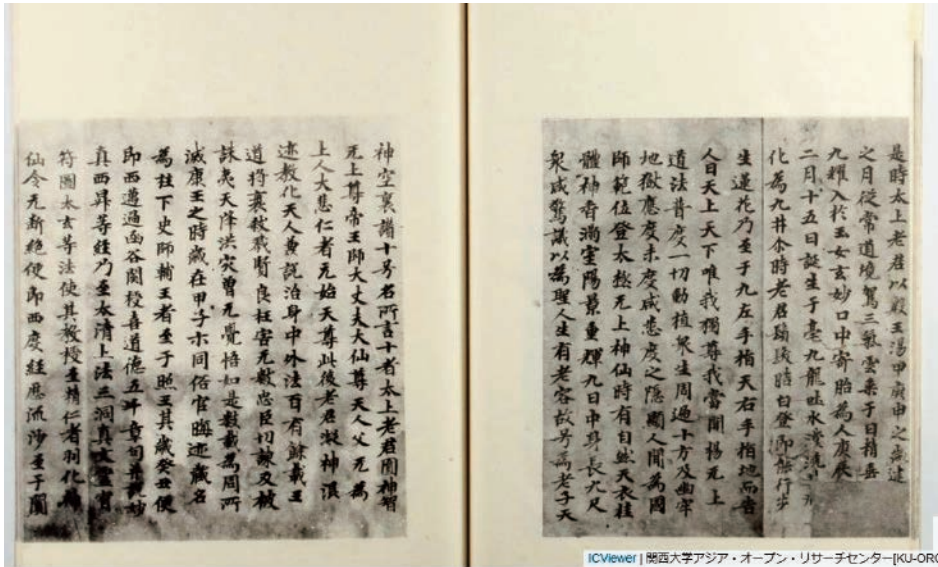 是時太上老君以殷王湯甲庚申之歲建
之月從常道境駕三氣雲乗于日精垂
九耀入於玉女玄妙口中寄胎為人庚辰
二月十五日誕生于亳九龍吐水灌洗
化為九井尒時老君鬚髮皓白登即能行步
生蓮花乃至于九左手指天右手指地而告
人曰天上天下唯我獨尊我當開揚无上
道法普度一切動植衆生周遍十方及幽牢
地獄應度未度咸悉度之隱顯人間為國
師範位登太極无上神仙時有自然天衣挂
體神香滿室陽景重輝九日中身長九尺
衆咸驚議以為聖人生有老容故号為老子天
神空裏讚十号名所言十者太上老君圎神智
无上尊帝王師大丈夫大仙尊天人父无為
上人大悲仁者元始天尊此後老君凝神混
迹教化天人兼說治身中外法百有餘載王
道将衰殺戮賢良枉害无數忠臣切諫反被
誅夷天降洪灾曽无覺悟如是數載為周所
滅康王之時歲在甲子示同俗官晦迹藏名
為柱下史師輔王者至于照王其歲癸丑便
即西邁過函谷關授喜道德五千章句并說妙
真西昇等經乃至太清上法三洞真文靈寶
符圖太玄等法使其教授至精仁者羽化
仙令无斷絶便即西度經歷流沙至于闐
ICViewer | 関西大学アジア・オープン・リサーチセンター[KU-ORC